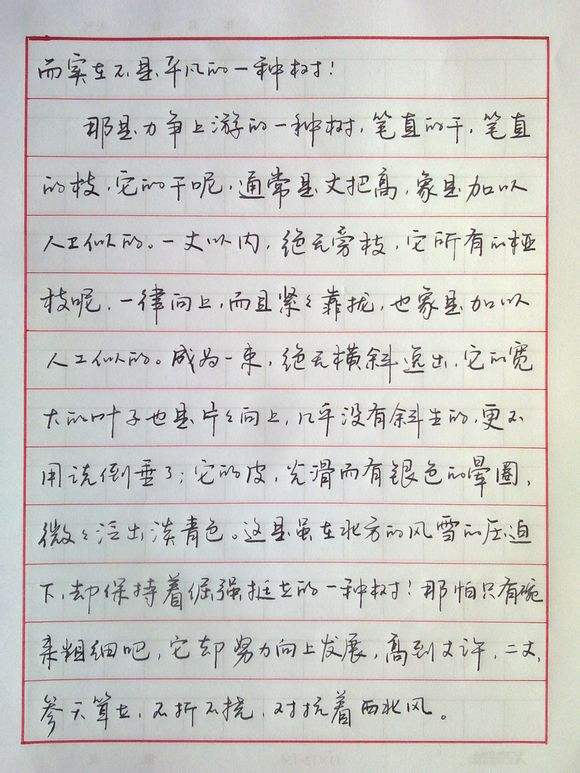 而实在不是平凡的一种树！
那是力争上游的一种树，笔直的干，笔直
的枝。它的干呢，通常是丈把高，象是加以
人工似的。一丈以内，绝无旁枝，它所有的桠
枝呢，一律向上，而且紧々靠拢，也象是加以
人工似的。成为一束，绝无横斜逸出，它的宽
大的叶子也是片々向上，几乎没有斜生的，更不
用说倒垂了；它的皮，光滑而有银色的晕圈，
微々泛出淡青色。这是虽在北方的风雪的压迫
下，却保持着倔强挺立的一种树！那怕只有碗
来粗细吧，它却努力向上发展，高到丈许，二丈，
参天耸立，不折不挠，对抗着西北风。